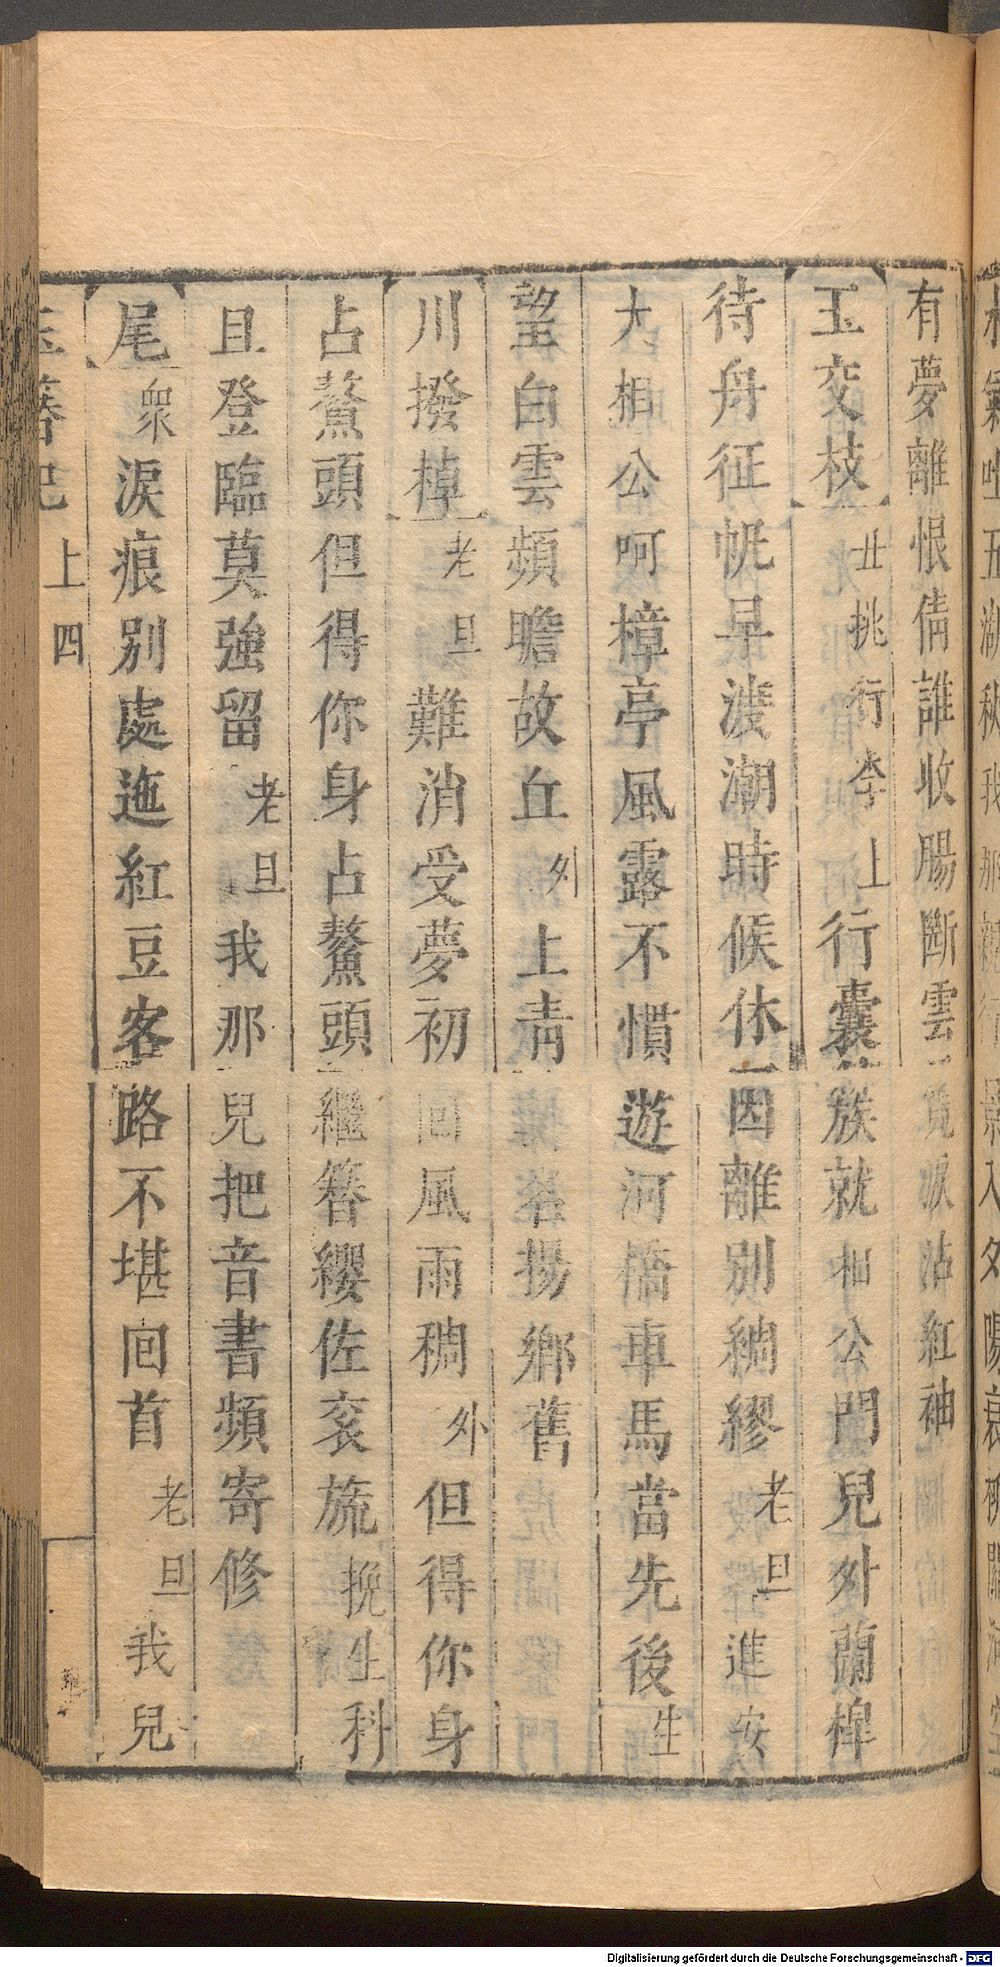 有夢離恨倩誰收腸斷雲 淚沾紅袖
玉交枝 丑挑行李上 行囊 族就 相公門兒外蘭槹
待舟征帆早渡潮時候休 因離別綢繆 老旦 進安
大相公呵樟亭風露不慣遊河橋車馬當先後 生
望白雲頻瞻故丘 外 上青 揚鄉舊
川撥棹 老旦 難消受夢初回風雨稠 外 但得你身
占鰲頭但得你身占鰲頭繼簪纓佐袞旒 挽生科
且登臨莫強留 老旦 我那兒把音書頻寄修
尾 衆 淚痕別處迤紅豆客路不堪回首 老旦 我兒
玉簪記 上 四
Digitalisierung gefördert durch die Deutsche Forschungsgemeinschaft - DFG